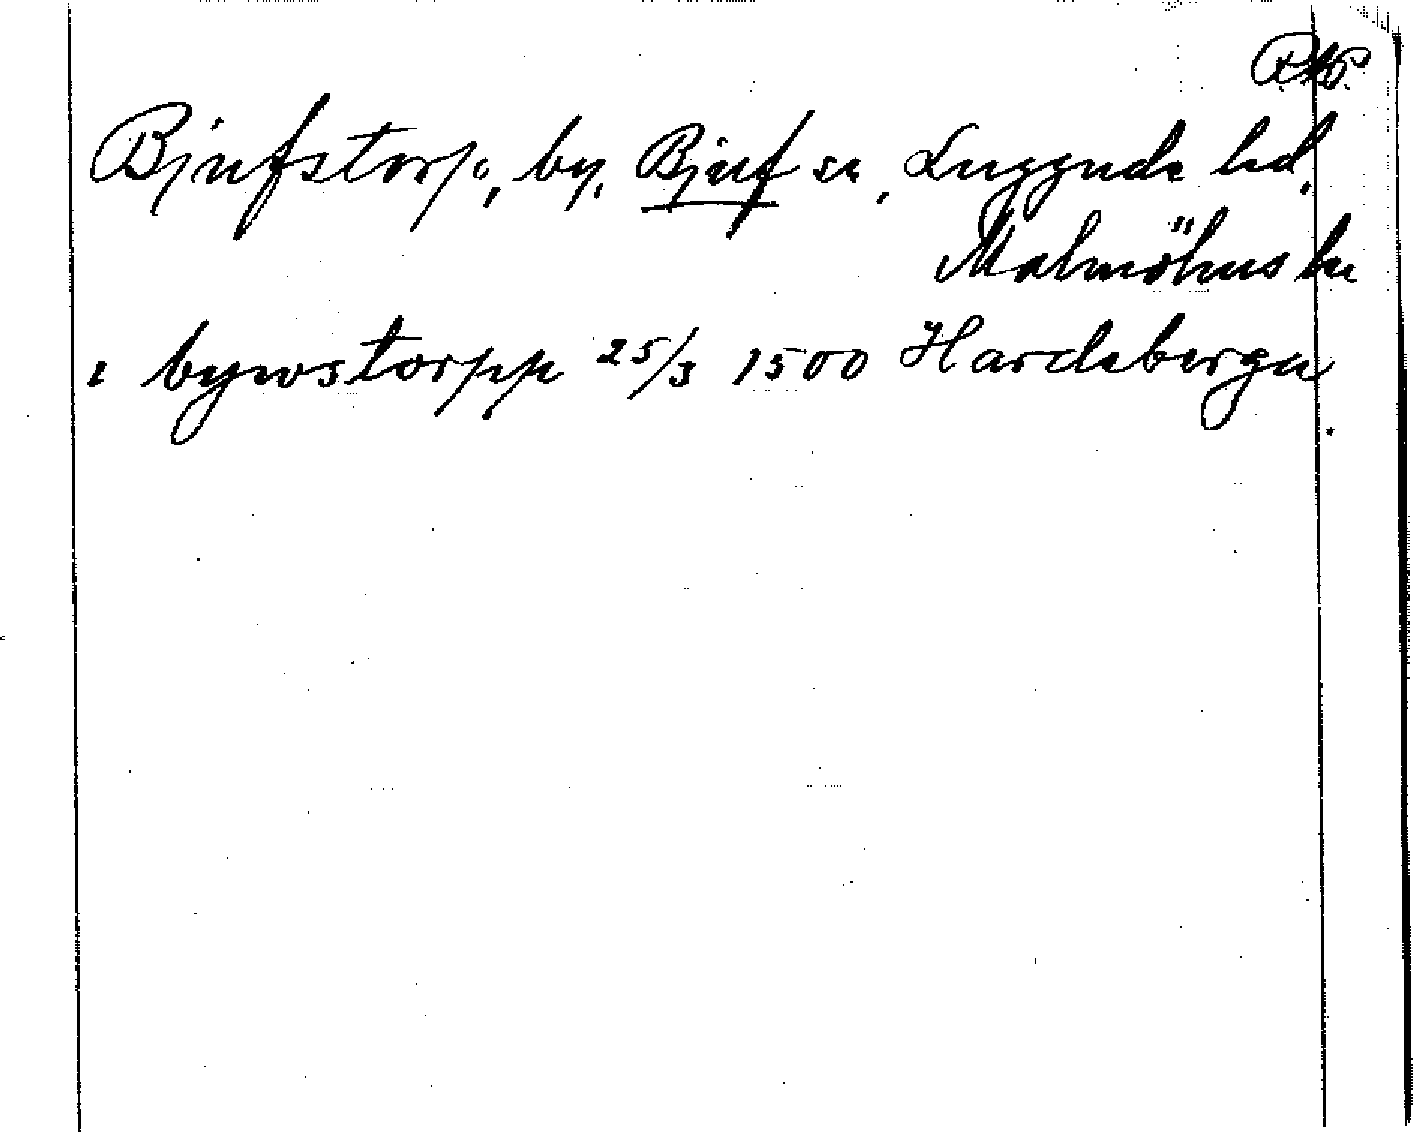 Bjufstorp, by, Bjuf sn, Luggude hd,
Malmöhus län
i bywstorpp 25/3 1500 Hardeberga